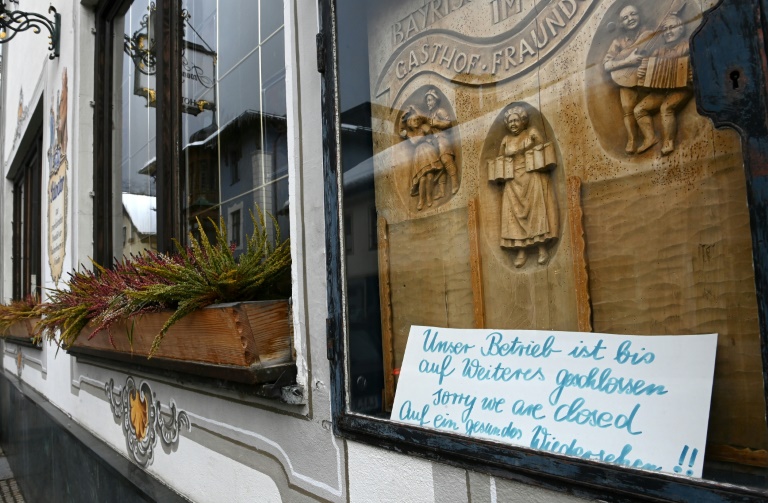 BAYRISCH
IM
GASTHOF·FRAUNDO
Unser Betrieb ist bis
auf Weiteres geschlossen
sorry we are closed
Auf ein gesundes Wiedersehen !!